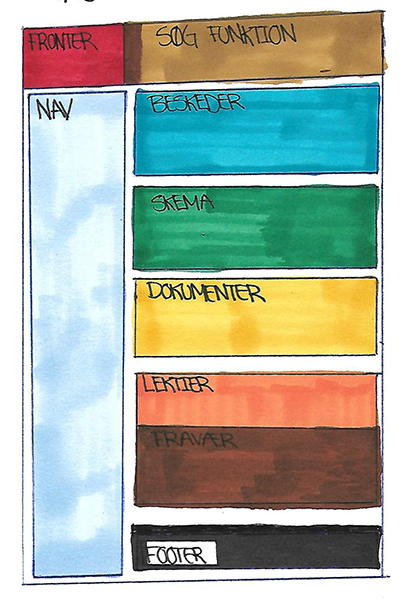 FRONTER
SØG FUNKTION
NAV
BESKEDER
SKEMA
DOKUMENTER
LEKTIER
FRAVÆR
FOOTER